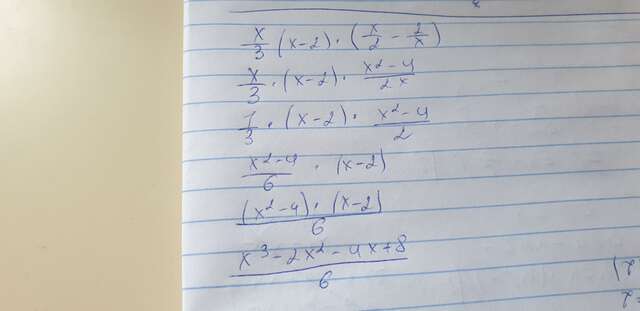 x/3 (x-2) · (x/2 - 2/x)
x/3 · (x-2) · x²-4/2x
1/3 · (x-2) · x²-4/2
x²-4/6 · (x-2)
(x²-4) · (x-2)/6
x³-2x²-4x+8/6